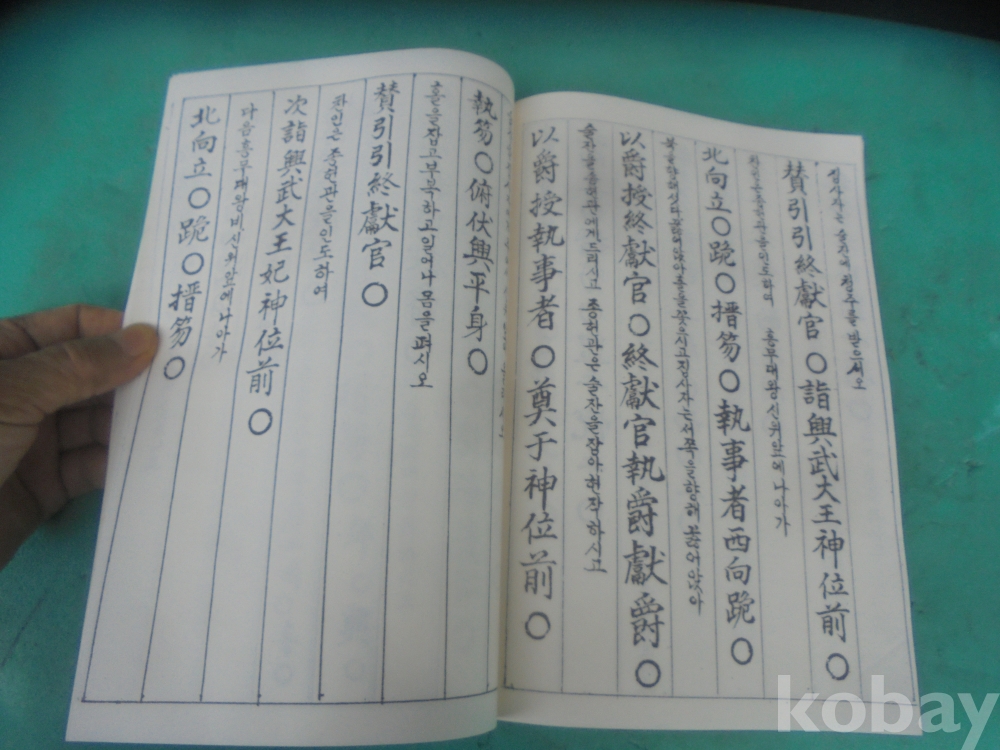 집사자는 술잔에 청주를 받으세오
贊引引終獻官○詣興武大王神位前○
찬인은종헌관을인도하여 흥무대왕신위앞에나아가
北向立○跪○搢笏○執事者西向跪○
북을향해섰다꿇어앉아홀을꽂으시고집사자는서쪽을향해 꿇어앉아
以爵授終獻官○終獻官執爵獻爵○
술잔을종헌관에게드리시고 종헌관은술잔을잡아헌작하시고
以爵授執事者○奠于神位前○
執笏○俯伏興平身○
홀을잡고부복하고일어나몸을펴시오
贊引引終獻官○
찬인은종헌관을인도하여
次詣興武大王妃神位前○
다음흥무대왕비신위앞에나아가
北向立○跪○搢笏○
kobay